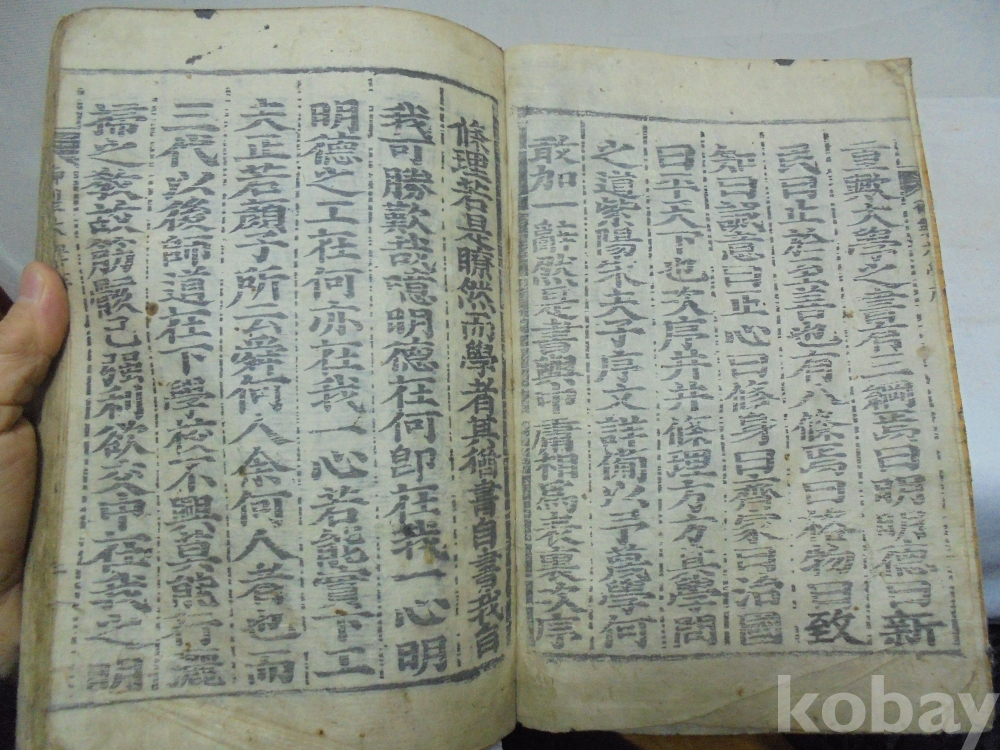 重歟大學之書有三綱焉曰明明德曰新
民曰止於至善也有八條焉曰格物曰致
知曰誠意曰正心曰修身曰齊家曰治國
曰平天下也次序井井條理方方其學問
之道紫陽朱夫子序文詳備以予蔑學何
敢加一辭然是書與中庸相爲表裏次序
條理若是瞭然而學者其猶書自書我自
我可勝歎哉噫明德在何卽在我一心明
明德之工在何亦在我一心若能實下工
夫正若顔子所云舜何人余何人者也而
三代以後師道在下學校不興莫能行灑
掃之敎故筋骸已强利欲交中在我之明
kobay